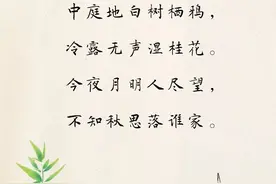 中庭地白树栖鸦，
冷露无声湿桂花。
今夜月明人尽望，
不知秋思落谁家。